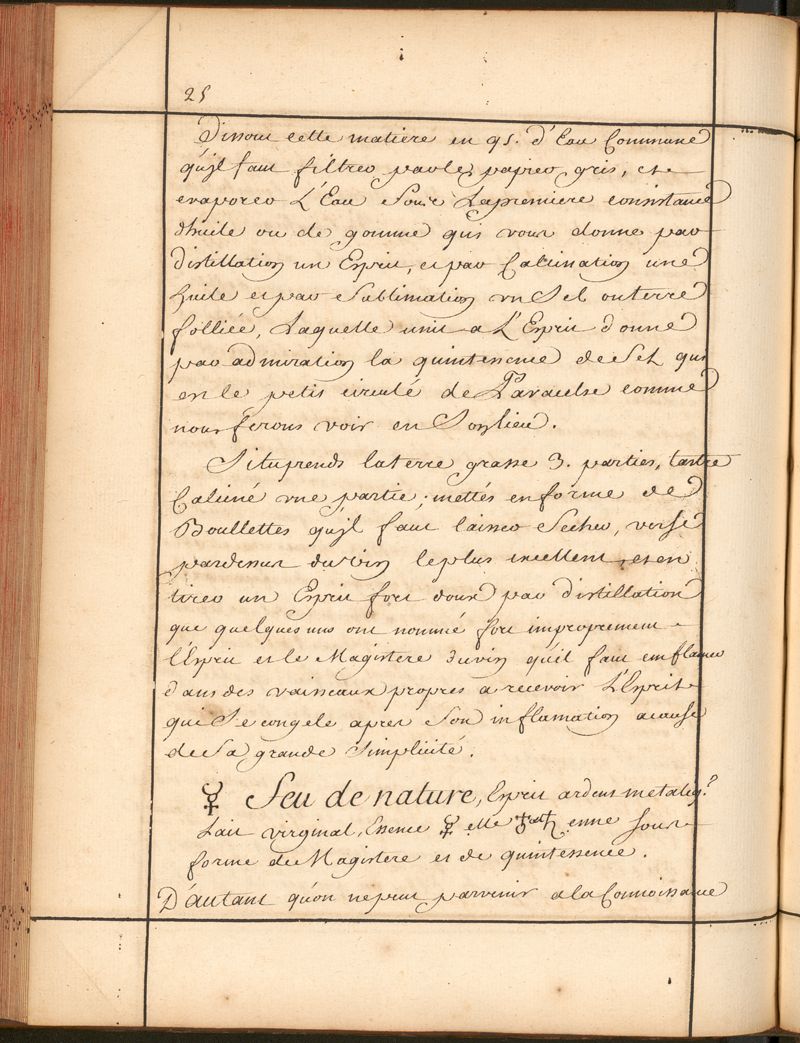 25
Dissout cette matiere en qs. d'Eau Commune
qu'jl faut filtrer par le papier gris, et
evaporer L'Eau Pour La premiere consistance
d'huile ou de gomme qui vous donne par
distillation un Esprit, et par Calcination une
huile et par Sublimation un Sel ou terre
folliée, Laquelle unit a L'Esprit donne
par admiration la quintessence de Sel qui
en le petit circulé de Paracelse comme
nous ferons voir en Son lieu.
Si tu prends la terre grasse 3. parties, tartre
Calciné une partie; mettés en forme de
Boullettes qu'jl faut laisser Secher, verse
par dessus du vin le plus excellent, et en
tirer un Esprit fort doux par distillation
que quelques uns ont nommé fort improprement
l'Esprit et le Magistere du vin qu'il faut emflamer
dans des vaisseaux propres a recevoir L'Esprit
qui Se congele apres Son inflamation a cause
de Sa grande Simplicité.
☿ Feu de nature, Esprit ardent metaliq.
Lait virginal, Essence ☿ elle enne sous
forme de Magistere et de quintessence.
D'autant qu'on ne peut parvenir a la Connoissance